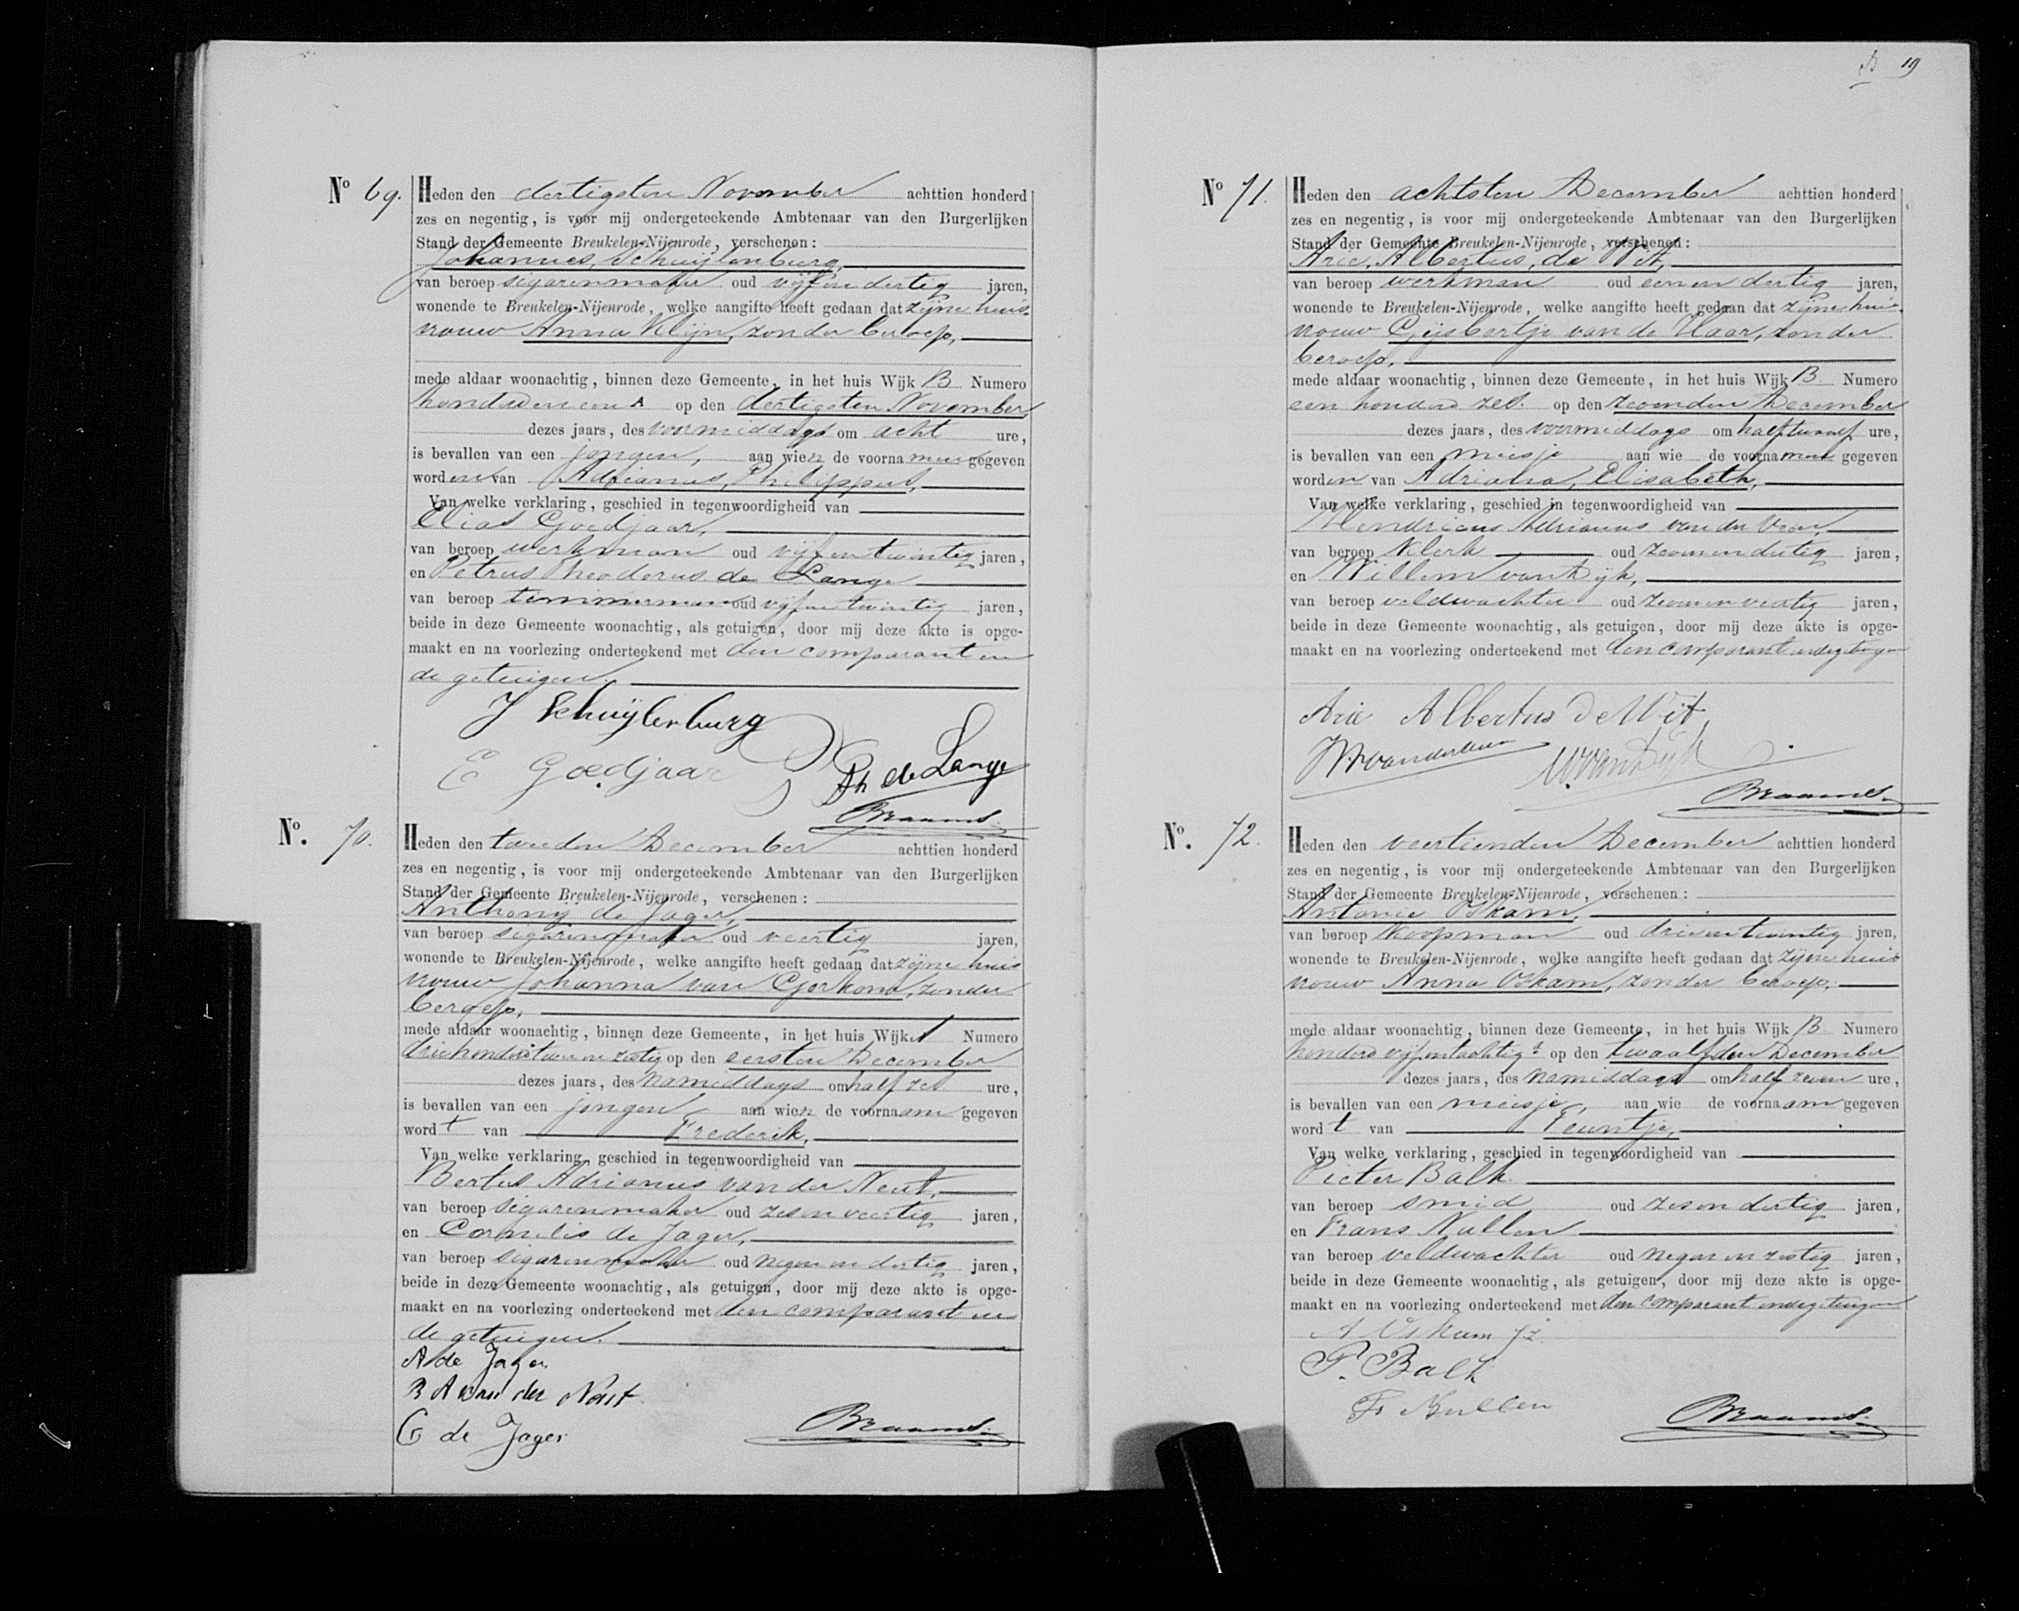 B 19
No 69. Heden den dertigsten November achttien honderd
zes en negentig, is voor mij ondergeteekende Ambtenaar van den Burgerlijken
Stand der Gemeente Breukelen-Nijenrode, verschenen:
Johannes Schuijlenburg,
van beroep sigarenmaker oud vijfendertig jaren,
wonende te Breukelen-Nijenrode, welke aangifte heeft gedaan dat zijne huis
vrouw Anna Klijn, zonder beroep,
mede aldaar woonachtig, binnen deze Gemeente, in het huis Wijk B Numero
honderd een A op den dertigsten November
dezes jaars, des voormiddags om acht ure,
is bevallen van een jongen, aan wien de voornamen gegeven
worden van Adrianus, Philippus,
Van welke verklaring, geschied in tegenwoordigheid van
Elias Goedjaar,
van beroep werkman oud vijfentwintig jaren,
en Petrus Theodorus de Lange
van beroep timmerman oud vijfentwintig jaren,
beide in deze Gemeente woonachtig, als getuigen, door mij deze akte is opge-
maakt en na voorlezing onderteekend met den comparant en
de getuigen.
J Schuijlenburg
E Goedjaar
Th de Lange
Braams
No. 70. Heden den tweeden December achttien honderd
zes en negentig, is voor mij ondergeteekende Ambtenaar van den Burgerlijken
Stand der Gemeente Breukelen-Nijenrode, verschenen:
Anthonij de Jager,
van beroep sigarenmaker oud veertig jaren,
wonende te Breukelen-Nijenrode, welke aangifte heeft gedaan dat zijne huis
vrouw Johanna van Gerkom, zonder
beroep,
mede aldaar woonachtig, binnen deze Gemeente, in het huis Wijk A Numero
driehonderd twee en zestig op den eersten December
dezes jaars, des namiddags om half zes ure,
is bevallen van een jongen aan wien de voornaam gegeven
wordt van Frederik,
Van welke verklaring, geschied in tegenwoordigheid van
Bertus Adrianus van der Neut,
van beroep sigarenmaker oud zesenveertig jaren,
en Cornelis de Jager,
van beroep sigarenmaker oud negenendertig jaren,
beide in deze Gemeente woonachtig, als getuigen, door mij deze akte is opge-
maakt en na voorlezing onderteekend met den comparant en
de getuigen.
A de Jager
B A van der Neut
C de Jager
Braams
No 71. Heden den achtsten December achttien honderd
zes en negentig, is voor mij ondergeteekende Ambtenaar van den Burgerlijken
Stand der Gemeente Breukelen-Nijenrode, verschenen:
Arie, Albertus, de Wit,
van beroep werkman oud eenendertig jaren,
wonende te Breukelen-Nijenrode, welke aangifte heeft gedaan dat zijne huis-
vrouw Gijsbertje van de Haar, zonder
beroep,
mede aldaar woonachtig, binnen deze Gemeente, in het huis Wijk B Numero
een honderd zes op den zevenden December
dezes jaars, des voormiddags om half twaalf ure,
is bevallen van een meisje aan wie de voornamen gegeven
worden van Adriana, Elisabeth,
Van welke verklaring, geschied in tegenwoordigheid van
Hendricus Adrianus van der Veer,
van beroep Klerk oud zevenendertig jaren,
en Willem van Dijk,
van beroep veldwachter oud zevenenveertig jaren,
beide in deze Gemeente woonachtig, als getuigen, door mij deze akte is opge-
maakt en na voorlezing onderteekend met den comparant en de getuigen
Arie Albertus de Wit
W van Dijk
Braams
No. 72. Heden den veertienden December achttien honderd
zes en negentig, is voor mij ondergeteekende Ambtenaar van den Burgerlijken
Stand der Gemeente Breukelen-Nijenrode, verschenen:
Antonie Oskam,
van beroep Koopman oud drieentwintig jaren,
wonende te Breukelen-Nijenrode, welke aangifte heeft gedaan dat zijne huis
vrouw Anna Oskam, zonder beroep,
mede aldaar woonachtig, binnen deze Gemeente, in het huis Wijk B Numero
honderd vijfentachtig op den twaalfden December
dezes jaars, des namiddags om half zeven ure,
is bevallen van een meisje, aan wie de voornaam gegeven
wordt van Teuntje,
Van welke verklaring, geschied in tegenwoordigheid van
Pieter Balk
van beroep smid oud zesendertig jaren,
en Frans Nullen
van beroep veldwachter oud negenenzestig jaren,
beide in deze Gemeente woonachtig, als getuigen, door mij deze akte is opge-
maakt en na voorlezing onderteekend met den comparant en de getuigen
A Oskam Jz
P. Balk
Fr Nullen
Braams